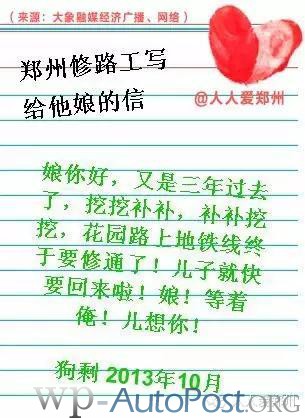 （来源：大象融媒经济广播、网络）
郑州修路工写
给他娘的信
@人人爱郑州
娘你好，又是三年过去
了，挖挖补补，补补挖
挖，花园路上地铁线终
于要修通了！儿子就快
要回来啦！娘！等着
俺！儿想你！
狗剩 2013年10月
wp-AutoPost.ORG